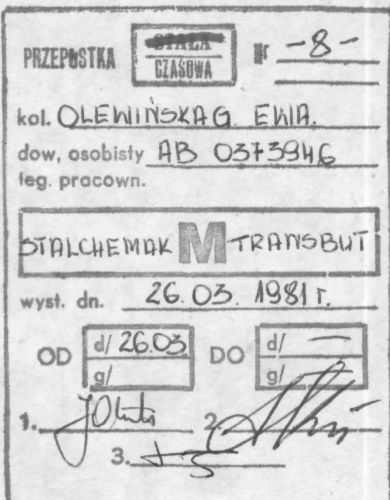 PRZEPUSTKA STAŁA Nr -8-
CZASOWA
kol. OLEWIŃSKA G. EWA.
dow, osobisty AB 0373946
leg. pracown.
STALCHEMAK M TRANSBUT
wyst. dn. 26.03.1981 r.
OD d/ 26.03 DO d/ —
g/ g/ —
1.
2.
3.